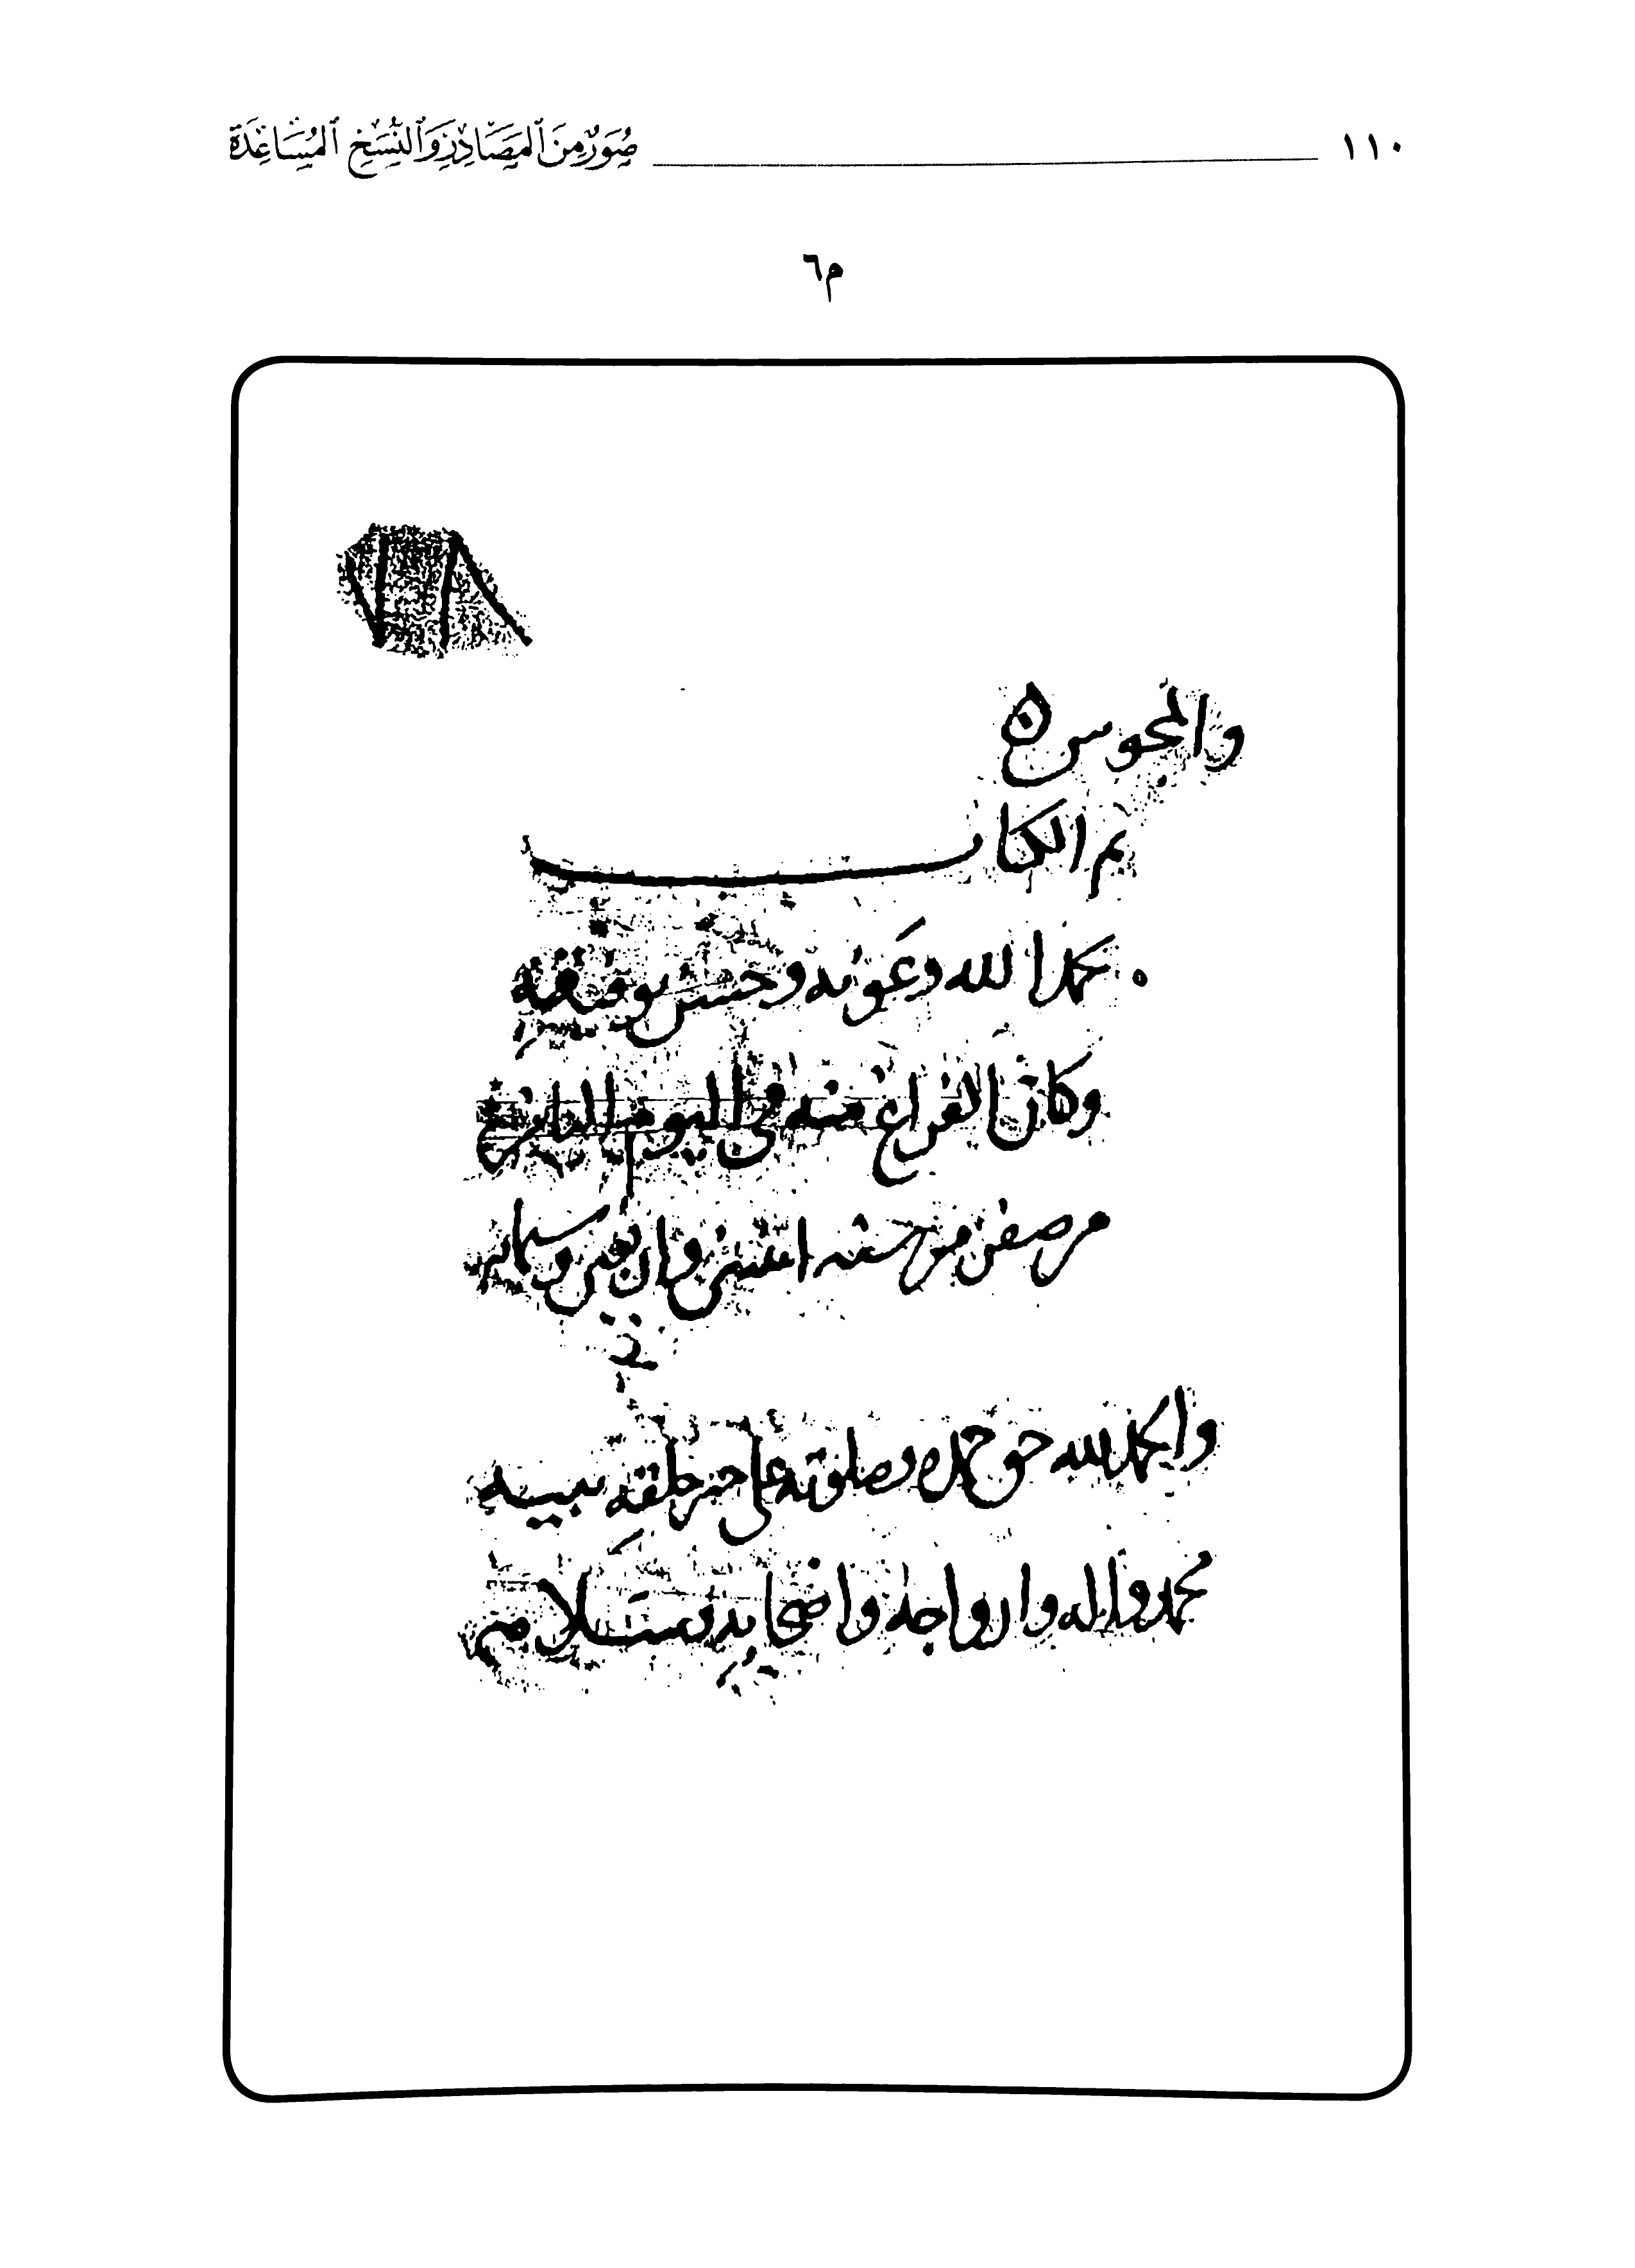 ١١٠ صُوَرٌ مِنَ ٱلمَصَادِرِ وَٱلنُّسَخِ ٱلمُسَاعِدَةِ
م٦
والمجوس ۞
تم الكتاب
بحمد الله وعونه وحسن توفيقه
وكان الفراغ منه فى اليوم الرابع
من صفر من سنه اثنتين واربعين وستمايه
والحمد لله حق حمده وصلوته على خير خلقه نبيه
محمد واله وازواجه واصحابه وسلامه